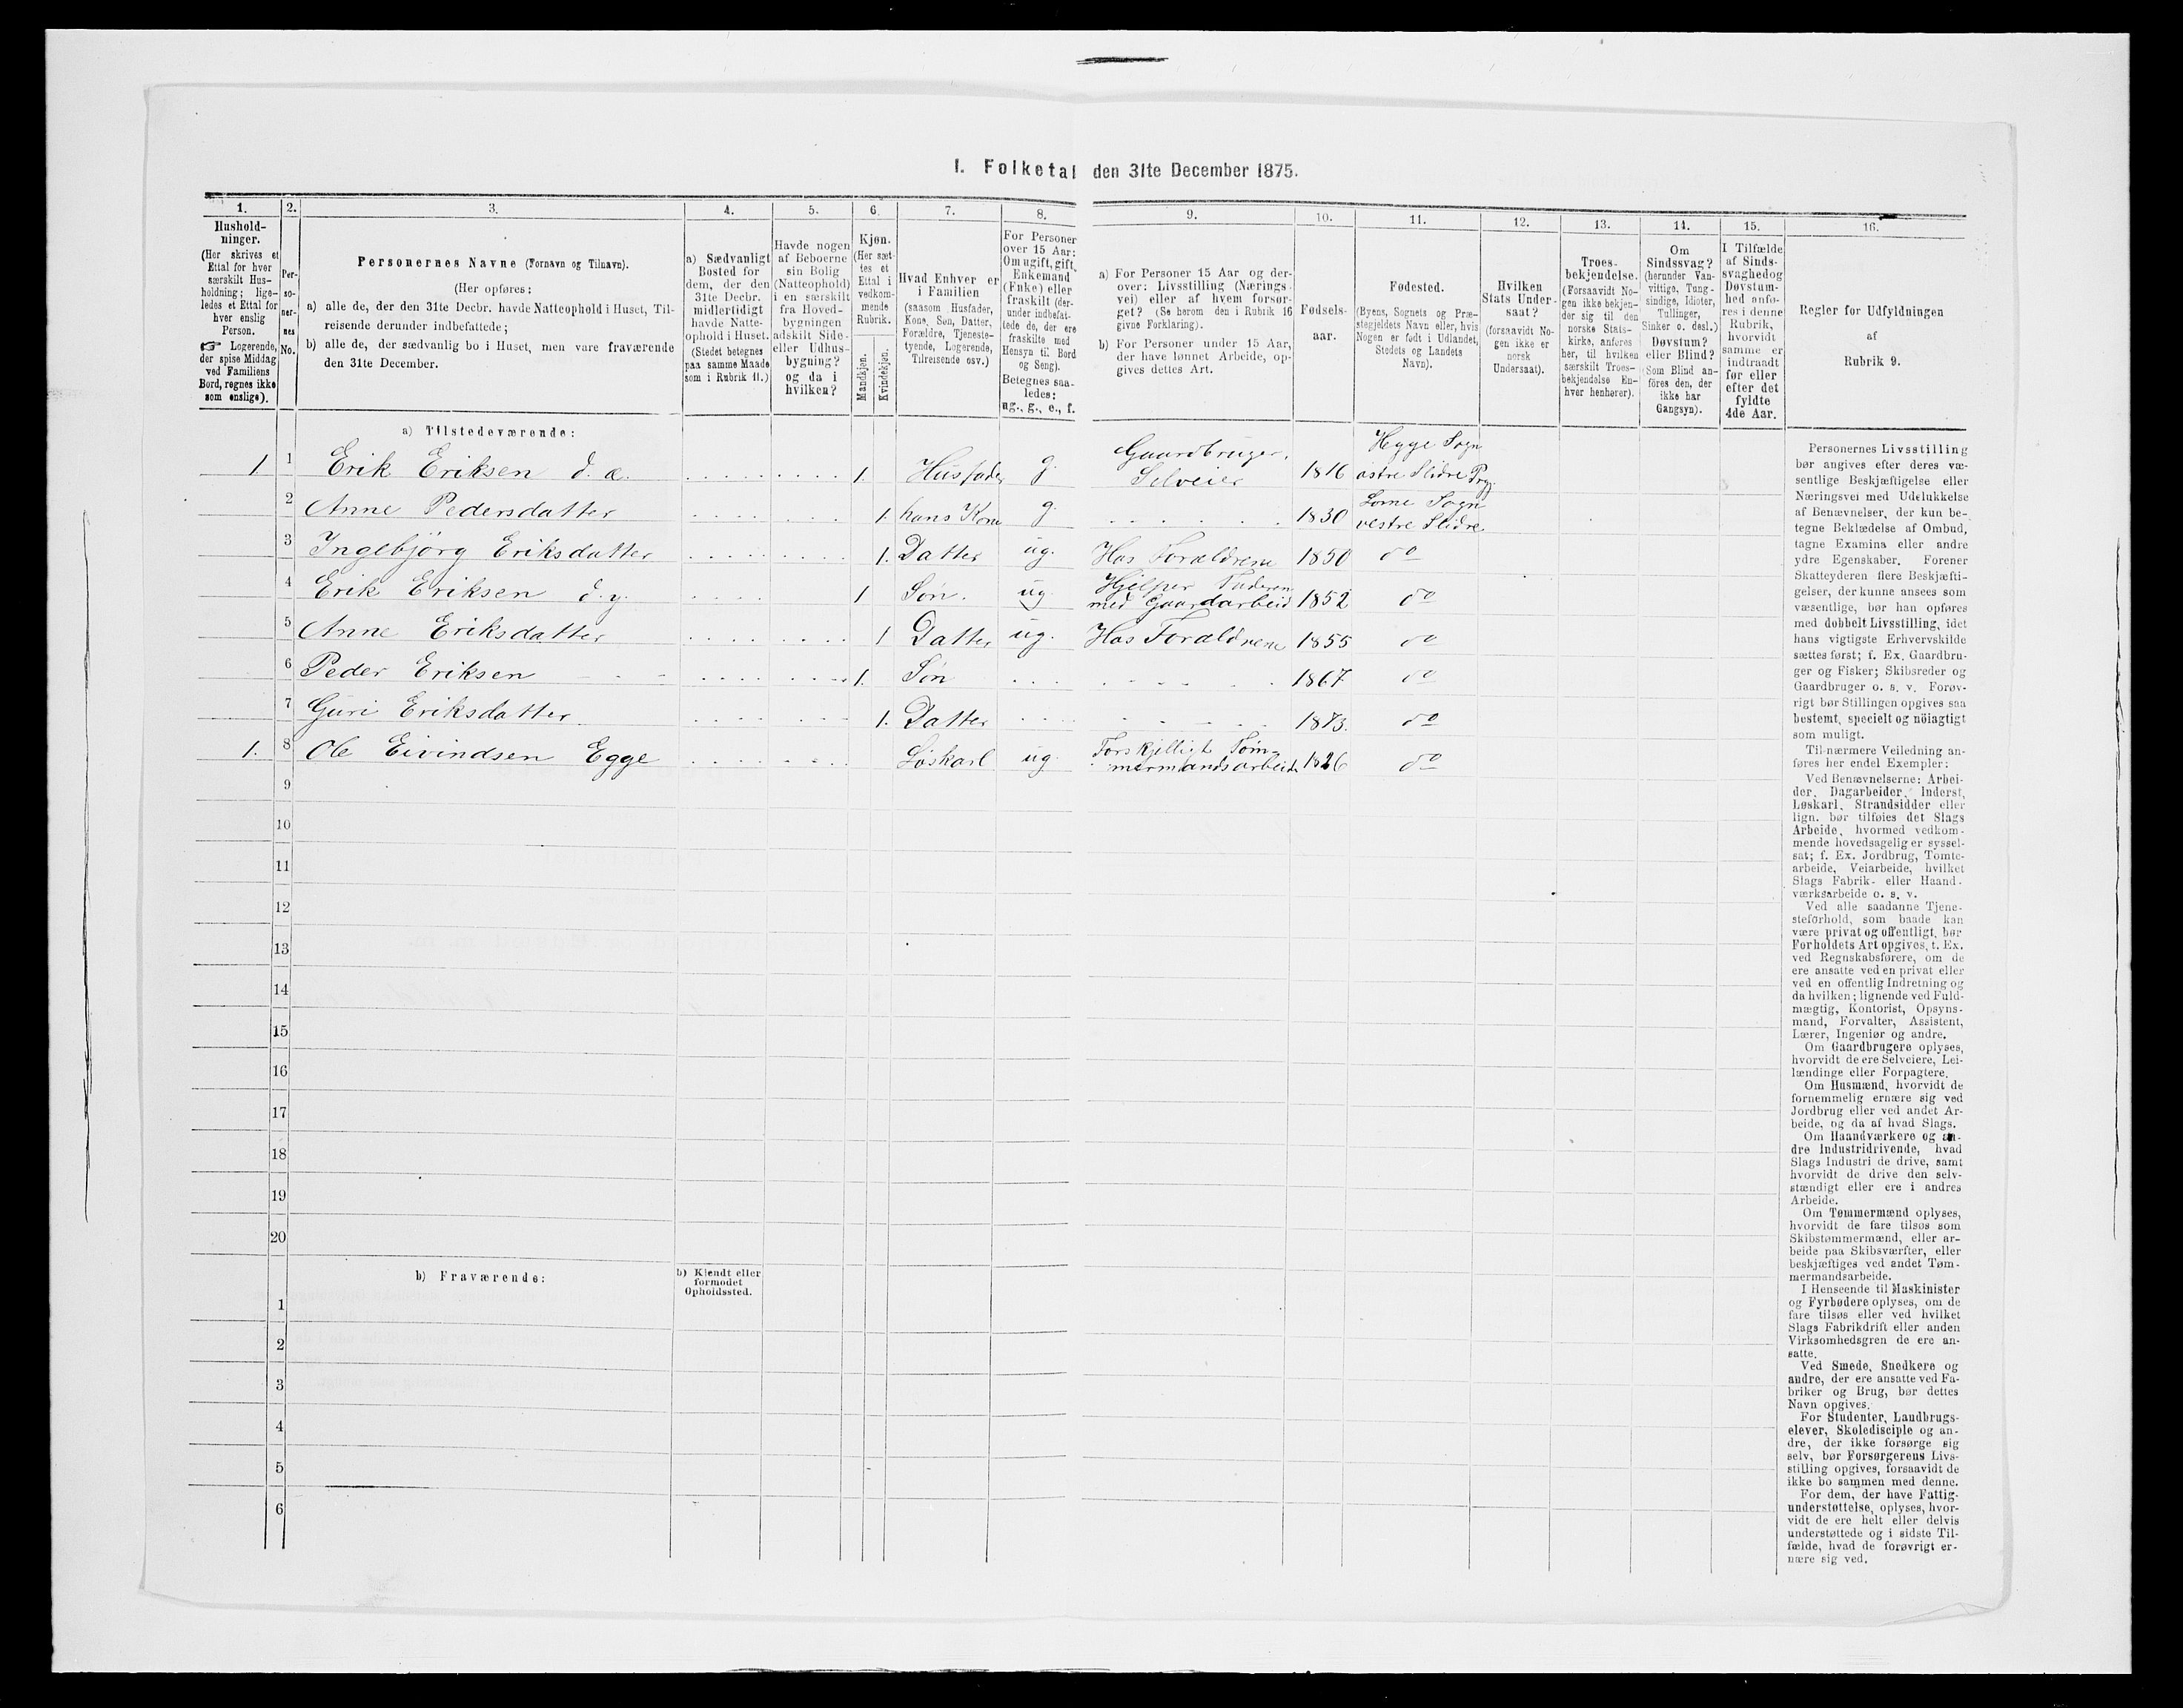 I. Folketal den 31te December 1875.
1.
2.
3.
4.
5.
6.
7.
8.
9.
10.
11.
12.
13.
14.
15.
16.
Hushold-
ninger.
(Her skrives et
Ettal for hver
særskilt Hus-
holdning; lige-
ledes et Ettal for
hver enslig
Person.
☞ Logerende,
der spise Middag
ved Familiens
Bord, regnes ikke
som enslige).
Per-
so-
ner-
nes
No.
Personernes Navne (Fornavn og Tilnavn).
(Her opføres:
a) alle de, der den 31te Decbr. havde Natteophold i Huset, Til-
reisende derunder indbefattede;
b) alle de, der sædvanlig bo i Huset, men vare fraværende
den 31te December.
a) Sædvanligt
Bosted for
dem, der den
31te Decbr.
midlertidigt
havde Natte-
ophold i Huset.
(Stedet betegnes
paa samme Maade
som i Rubrik 11.)
Havde nogen
af Beboerne
sin Bolig
(Natteophold)
i en særskilt
fra Hoved-
bygningen
adskilt Side-
eller Udhus-
bygning?
og da i
hvilken?
Kjøn.
(Her sæt-
tes et
Ettal i
vedkom-
mende
Rubrik.
Mandkjøn.
Kvindekjøn.
Hvad Enhver er
i Familien
(saasom Husfader,
Kone, Søn, Datter,
Forældre, Tjeneste-
tyende, Logerende,
Tilreisende osv.)
For Personer
over 15 Aar:
Om ugift, gift,
Enkemand
(Enke) eller
fraskilt (der-
under indbefat-
tede de, der ere
fraskilte med
Hensyn til Bord
og Seng).
Betegnes saa-
ledes:
ug., g., e., f.
a) For Personer 15 Aar og der-
over: Livsstilling (Nærings-
vei) eller af hvem forsør-
get? (Se herom den i Rubrik 16
givne Forklaring).
b) For Personer under 15 Aar,
der have lønnet Arbeide, op-
gives dettes Art.
Fødsels-
aar.
Fødested.
(Byens, Sognets og Præ-
stegjeldets Navn eller, hvis
Nogen er født i Udlandet,
Stedets og Landets
Navn).
Hvilken
Stats Under-
saat?
(forsaavidt No-
gen ikke er
norsk
Undersaat).
Troes-
bekjendelse.
(Forsaavidt No-
gen ikke bekjen-
der sig til den
norske Stats-
kirke, anføres
her, til hvilken
særskilt Troes-
bekjendelse En-
hver henhører).
Om
Sindssvag?
(herunder Van-
vittige, Tung-
sindige, Idioter,
Tullinger,
Sinker o. desl.)
Døvstum?
eller Blind?
(Som Blind an-
föres den, der
ikke har
Gangsyn).
I Tilfælde
af Sinds-
svaghed og
Døvstum-
hed anfø-
res i denne
Rubrik,
hvorvidt
samme er
indtraadt
før eller
efter det
fyldte
4de Aar.
Regler for Udfyldningen
af
Rubrik 9.
a) Tilstedeværende:
1 1 Erik Eriksen d. æ. 1. Husfader g. Gaardbruger, Selveier 1816 Hegge Sogn østre Slidre Prg.
2 Anne Pedersdatter 1. hans Kone g. 1830 Lome Sogn vestre Slidre
3 Ingebjörg Eriksdatter 1. Datter ug. Hos Forældrene 1850 do
4 Erik Eriksen d. y. 1 Søn. ug. Hjelper Faderen med Gaardarbeid 1852 do
5 Anne Eriksdatter 1 Datter ug. Hos Forældrene 1855 do
6 Peder Eriksen 1. Søn 1867 do
7 Guri Eriksdatter 1. Datter 1873. do
1. 8 Ole Eivindsen Egge Løskarl ug. Forskjelligt Tøm- mermandsarbeide 1826 do
9
10
11
12
13
14
15
16
17
18
19
20
b) Fraværende:
b) Kjendt eller
formodet
Opholdssted.
1
2
3
4
5
6
Personernes Livsstilling
bør angives efter deres væ-
sentlige Beskjæftigelse eller
Næringsvei med Udelukkelse
af Benævnelser, der kun be-
tegne Beklædelse af Ombud,
tagne Examina eller andre
ydre Egenskaber. Forener
Skatteyderen flere Beskjæfti-
gelser, der kunne ansees som
væsentlige, bør han opføres
med dobbelt Livsstilling, idet
hans vigtigste Erhvervskilde
sættes først; f. Ex. Gaardbru-
ger og Fisker; Skibsreder og
Gaardbruger o. s. v. Forøv-
rigt bør Stillingen opgives saa
bestemt, specielt og nöiagtigt
som muligt.
Til nærmere Veiledning an-
føres her endel Exempler:
Ved Benævnelserne: Arbei-
der, Dagarbeider, Inderst,
Løskarl, Strandsidder eller
lign. bør tilføies det Slags
Arbeide, hvormed vedkom-
mende hovedsagelig er syssel-
sat; f. Ex. Jordbrug, Tomte-
arbeide, Veiarbeide, hvilket
Slags Fabrik- eller Haand-
værksarbeide o. s. v.
Ved alle saadanne Tjene-
steforhold, som baade kan
være privat og offentligt, bør
Forholdets Art opgives, t. Ex.
ved Regnskabsførere, om de
ere ansatte ved en privat eller
ved en offentlig Indretning og
da hvilken; lignende ved Fuld-
mægtig, Kontorist, Opsyns-
mand, Forvalter, Assistent,
Lærer, Ingeniør og andre.
Om Gaardbrugere oplyses,
hvorvidt de ere Selveiere, Lei-
lændinge eller Forpagtere.
Om Husmænd, hvorvidt de
fornemmelig ernære sig ved
Jordbrug eller ved andet Ar-
beide, og da af hvad Slags.
Om Haandværkere og an-
dre Industridrivende, hvad
Slags Industri de drive, samt
hvorvidt de drive den selv-
stændigt eller ere i andres
Arbeide.
Om Tømmermænd oplyses,
hvorvidt de fare tilsøs som
Skibstømmermænd, eller ar-
beide paa Skibsværfter, eller
beskjæftiges ved andet Tøm-
mermandsarbeide.
I Henseende til Maskinister
og Fyrbødere oplyses, om de
fare tilsøs eller ved hvilket
Slags Fabrikdrift eller anden
Virksomhedsgren de ere an-
satte.
Ved Smede, Snedkere og
andre, der ere ansatte ved Fa-
briker og Brug, bør dettes
Navn opgives.
For Studenter, Landbrugs-
elever, Skoledisciple og an-
dre, der ikke forsørge sig
selv, bør Forsørgerens Livs-
stilling opgives, forsaavidt de
ikke bo sammen med denne.
For dem, der have Fattig-
understøttelse, oplyses, hvor-
vidt de ere helt eller delvis
understøttede og i sidste Til-
fælde, hvad de forøvrigt er-
nære sig ved.